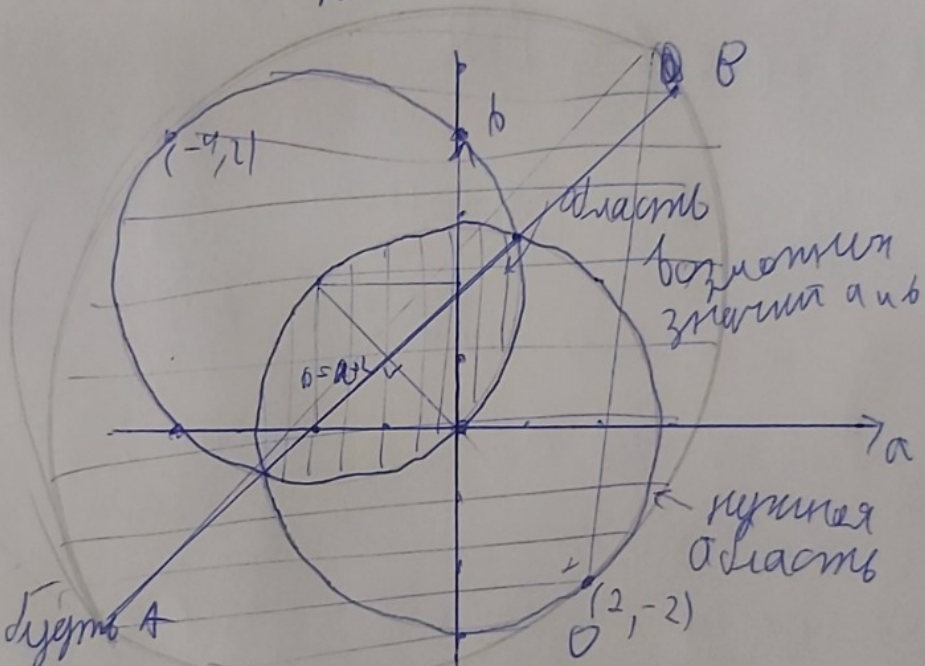 B
b
(-4,2)
область
возможных
значий a и b
b=a+2
a
нужная
область
(2,-2)
O
будть A